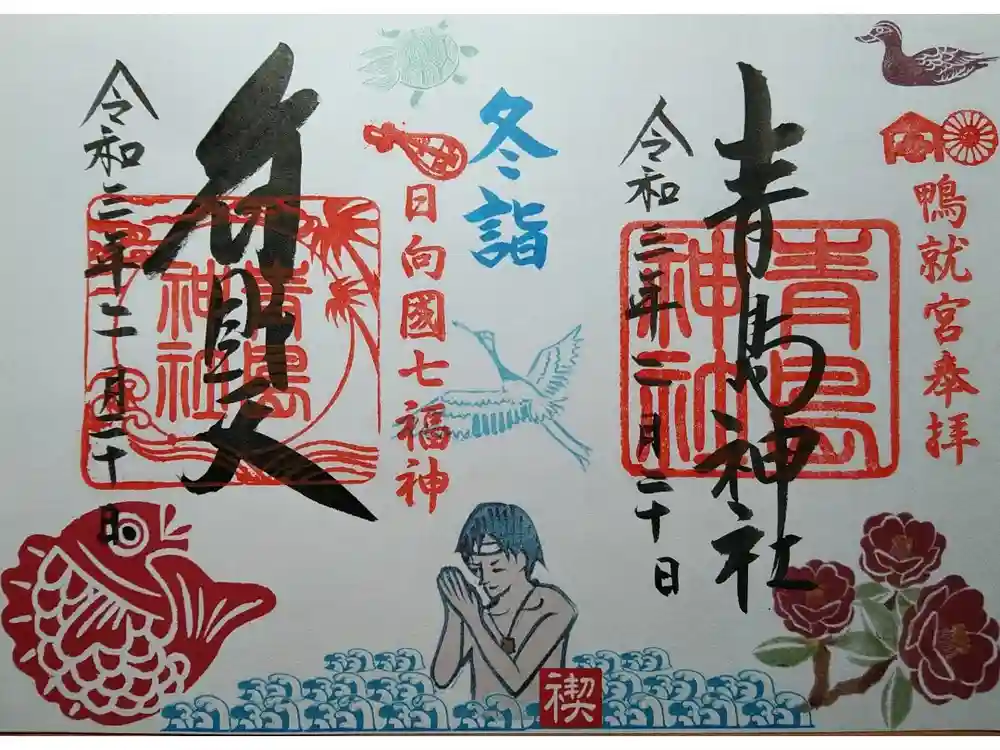 鴨就宮奉拝
青島神社
青島神社
令和三年二月二十日
冬詣
日向國七福神
弁財天
青島神社
令和三年二月二十日
禊